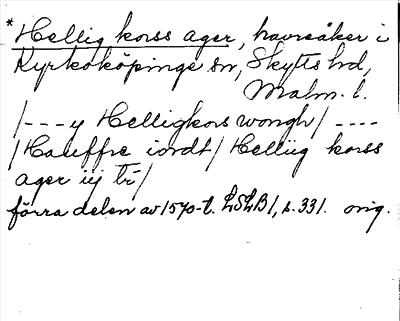 *Hellig korss ager, havreåker i
Kyrkoköpinge sn, Skytts hd,
Malm. l.
/---y Helligkors wongh/ ----
/Hauffre iordt/ Helliig korss
ager iij tr/
förra delen av 1570-t. LSLB1, s. 331. orig.